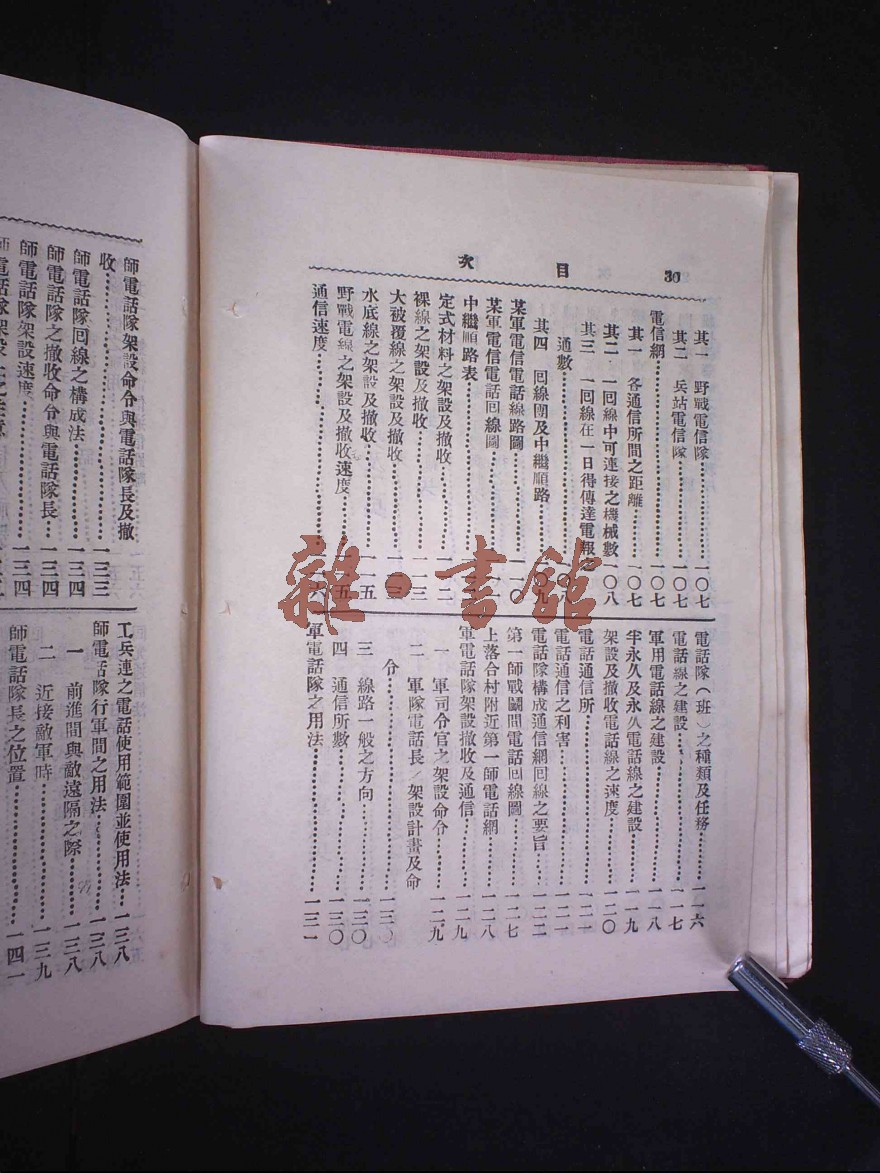 30 目次
其一 野戰電信隊……一〇七
其二 兵站電信隊……一〇七
電信網……一〇七
其一 各通信所間之距離……一〇七
其二 一回線中可連接之機械數 一〇八
其三 一回線在一日得傳達電報之
通數……一〇八
其四 回線圖及中繼順路……一〇九
某軍電信電話線路圖……一一〇
某軍電信電話回線圖……
中繼順路表……
定式材料之架設及撤收……一一二
裸線之架設及撤收……一一三
大被覆線之架設及撤收……一一三
水底線之架設及撤收……一一五
野戰電線之架設及撤收速度……一一五
通信速度……一一六
電話隊(班)之種類及任務……一一六
電話線之建設……一一七
軍用電話線之建設……一一八
半永久及永久電話線之建設……一一九
架設及撤收電話線之速度……一二〇
電話通信所……一二一
電話通信之利害……一二一
電話隊構成通信網回線之要旨……一二二
第一師戰鬭間電話回線圖……一二七
上落合村附近第一師電話網……一二八
軍電話隊架設撤收及通信……一二九
一 軍司令官之架設命令……一二九
二 軍隊電話長ノ架設計畫及命
令……一三〇
三 線路一般之方向……一三〇
四 通信所數……一三〇
軍電話隊之用法……一三一
師電話隊架設命令與電話隊長及撤
收……一三三
師電話隊回線之構成法……一三四
師電話隊之撤收命令與電話隊長……一三四
師電話隊架設速度……一三四
工兵連之電話使用範圍並使用法……一三八
師電話隊行軍間之用法……一三八
一 前進間與敵遠隔之際……一三八
二 近接敵軍時……一三九
師電話隊長之位置……一四一
雜·書館